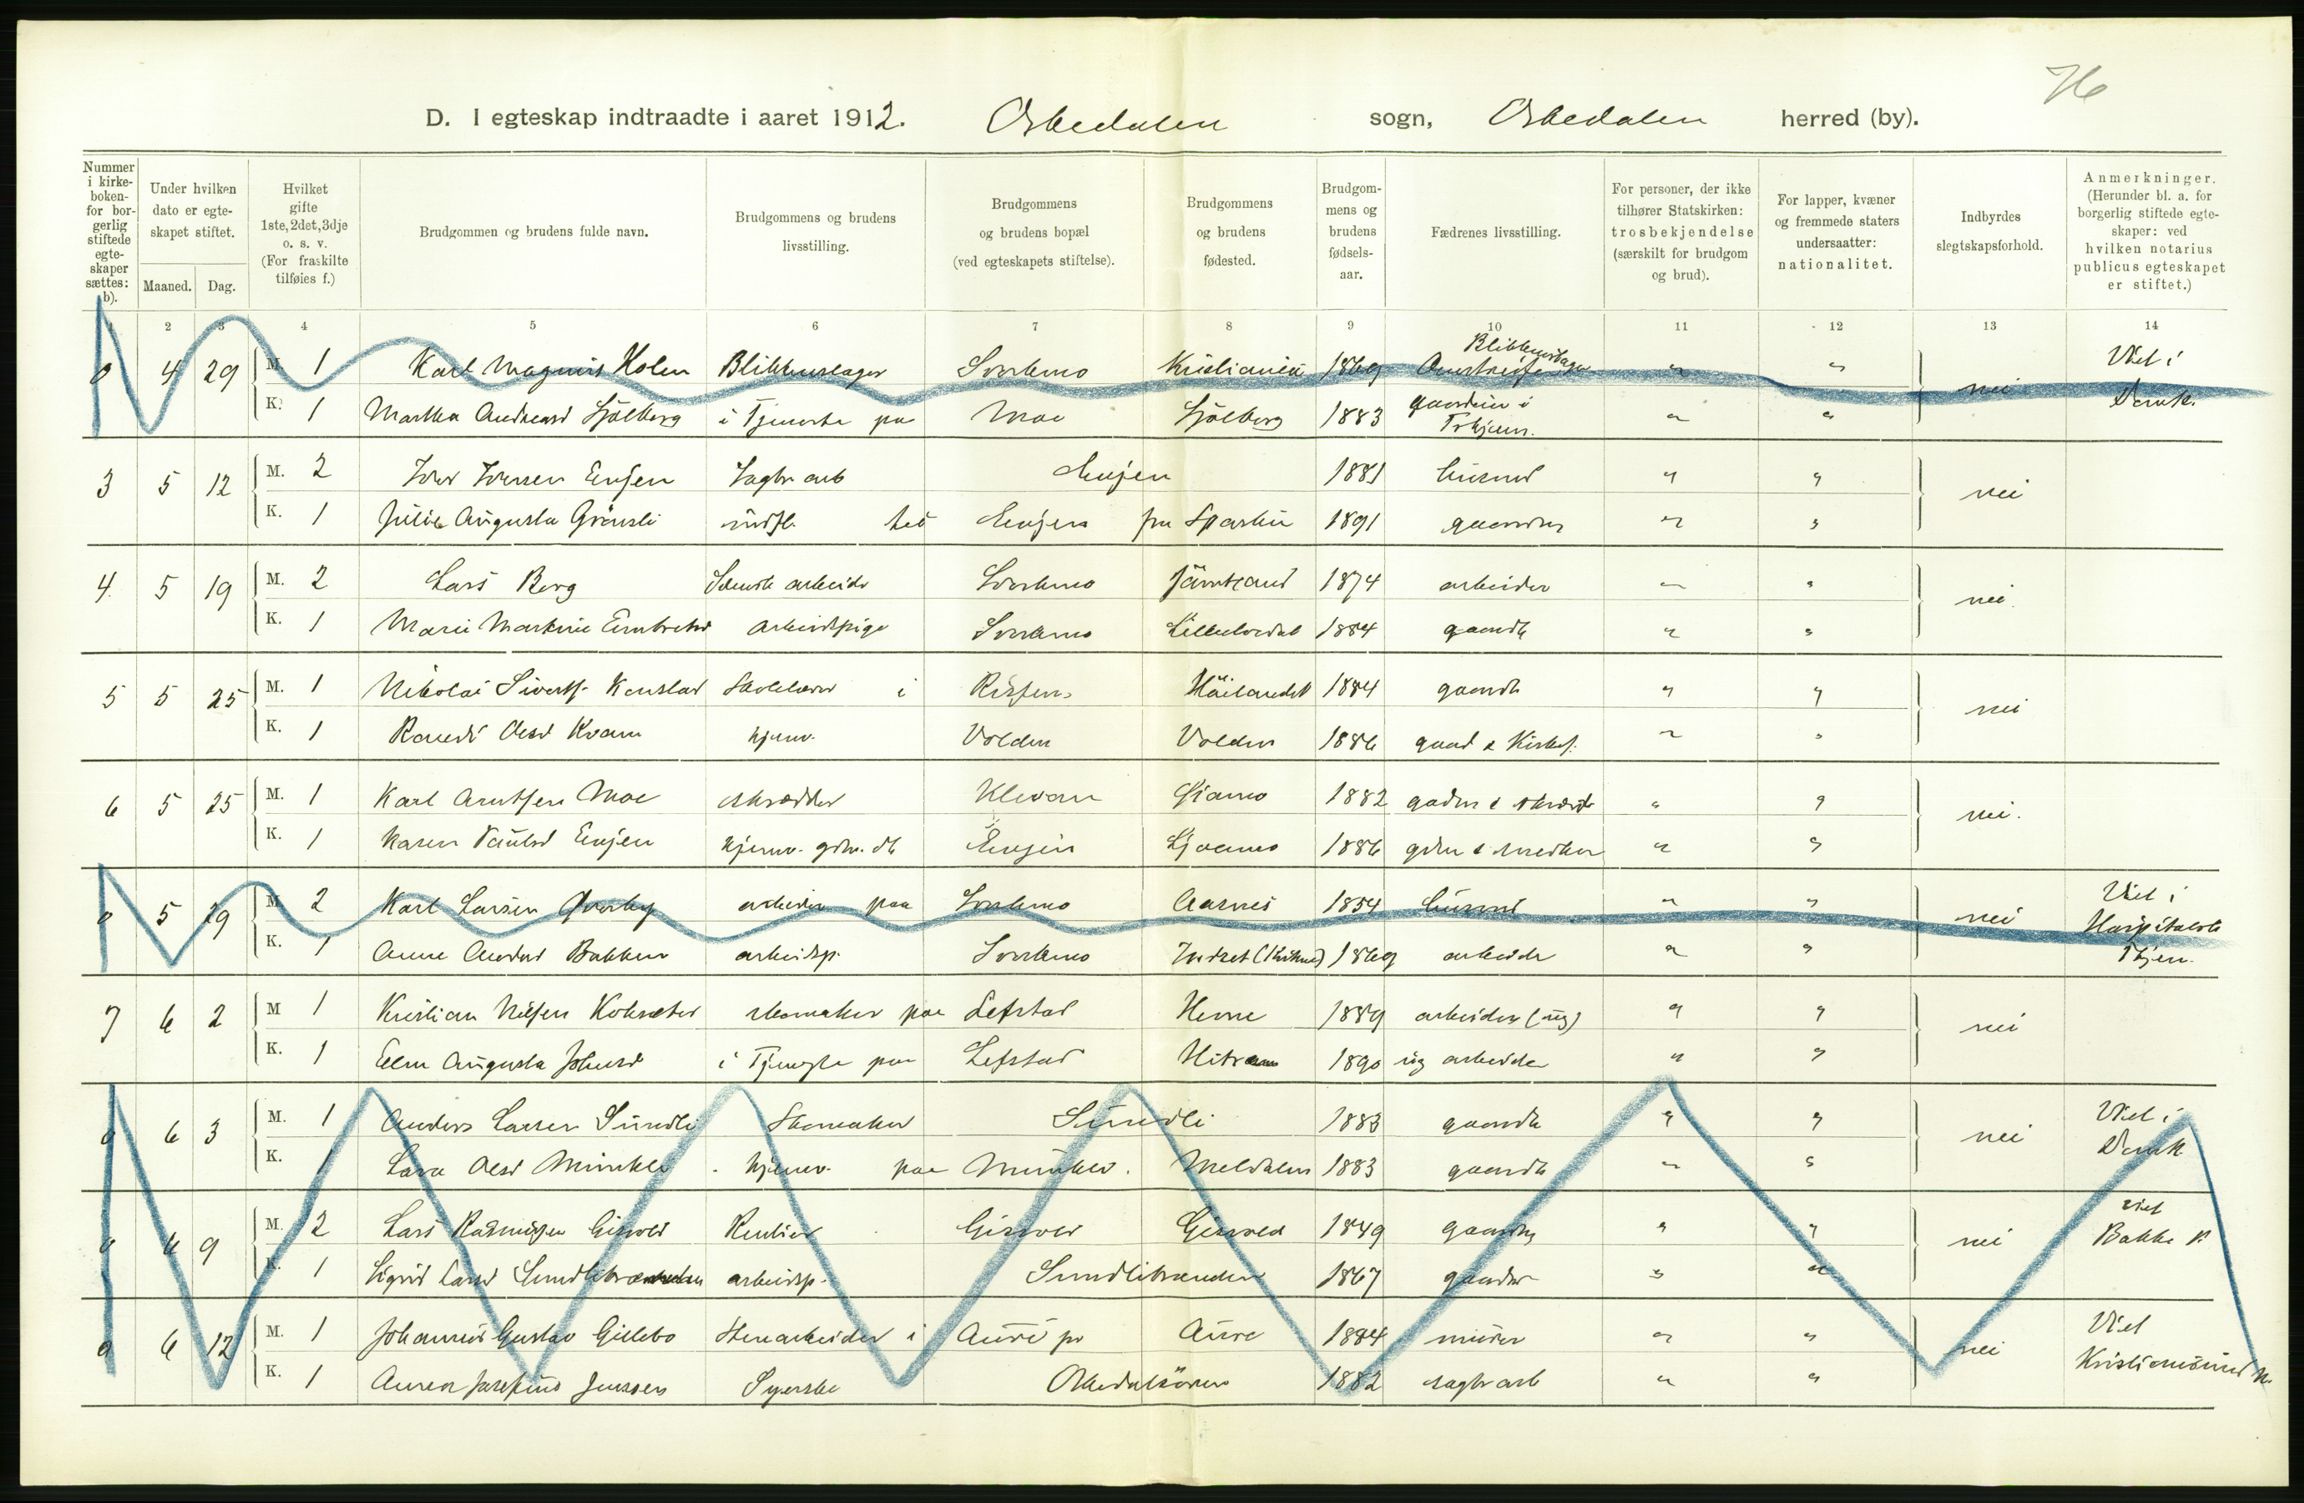 76
D. I egteskap indtraadte i aaret 1912. Orkedalen sogn, Orkedalen herred (by).
Nummer i kirke-boken- for bor-gerlig stiftede egte-skaper sættes: b).
Under hvilken dato er egte-skapet stiftet.
Maaned. Dag.
Hvilket gifte 1ste, 2det, 3dje o. s. v. (For fraskilte tilføies f.)
Brudgommen og brudens fulde navn.
Brudgommens og brudens livsstilling.
Brudgommens og brudens bopæl (ved egteskapets stiftelse).
Brudgommens og brudens fødested.
Brudgom-mens og brudens fødsels-aar.
Fædrenes livsstilling.
For personer, der ikke tilhører Statskirken: trosbekjendelse (særskilt for brudgom og brud).
For lapper, kvæner og fremmede staters undersaatter: nationalitet.
Indbyrdes slegtskapsforhold.
Anmerkninger. (Herunder bl. a. for borgerlig stiftede egte-skaper: ved hvilken notarius publicus egteskapet er stiftet.)
2 3 4 5 6 7 8 9 10 11 12 13 14
0 4 29 M. 1 Karl Magnus Holen Blikkenslager Svorkmo Kristiania 1869 Blikkenslager " " nei Viet i
K. 1 Martha Andreasd Sjölberg i Tjeneste paa Moe Sjölberg 1883 " " Domk.
3 5 12 M. 2 Enjen Sagbr arb Enjen 1881 husmd " " nei
K. 1 Julie Augusta Grönsli indfl. hos Enjen fra Sparbu 1891 gaardbr " "
4. 5 19 M. 2 Lars Berg Svensk arbeider Svorkmo Jämtland 1874 arbeider " " nei.
K. 1 Marie Martine Embretsd arbeidspige Svorkmo Lilleelvedal 1884 gaardb " "
5 5 25 M. 1 Nikolai Siverts. Konstad Skolelærer i Rissen Höilandet 1884 gaardb " " nei
K. 1 Randi Olsd Kvam hjemv. Volden Volden 1886 gaardb & Kirkes. " "
6 5 25 M. 1 Karl Arntsen Moe skrædder Klevan 1882 " " nei.
K. 1 Karen Paulsd Enjen hjemv. gdbr. dt Enjen 1886 gdbr & snedker " "
0 5 29 M 2 Karl Larsen arbeider paa Svorkmo Aasnes 1854 husmd " " nei Viet i
Hospitalsk
K. 1 Anne Andersd Bakken arbeidsp. Svorkmo Indset (Kvikne) 1869 arbeider " " Thjem.
7 6 2 M 1 Kristian Nilsen skomaker paa Lefstad Hevne 1889 arbeider (ug) " " nei
K. 1 Elen Augusta Johnsd i Tjeneste paa Lefstad Hitra 1890 ug arbeider " "
0 6 3 M. 1 Anders Larsen Sundli Skomaker Sundli 1883 gaardb " " nei Viet i
K. 1 Olsd hjemv. paa Meldalen 1883 gaardb " " Domk
0 6 9 M. 2 Lars Rasmussen Gisvold Rentier Gisvold Gisvold 1849 gaardbr " " nei viet
Bakke K.
K. 1 Sigrid Larsd arbeidsp. 1867 gaardbr " "
0 6 12 M. 1 Johannes Gustav Gillebo Stenarbeider i Aure pr Aure 1884 murer " " nei Viet
Kristiansund N.
K. 1 Anna Josefine Jenssen Syerske Orkedalsören 1882 sagbr arb " "